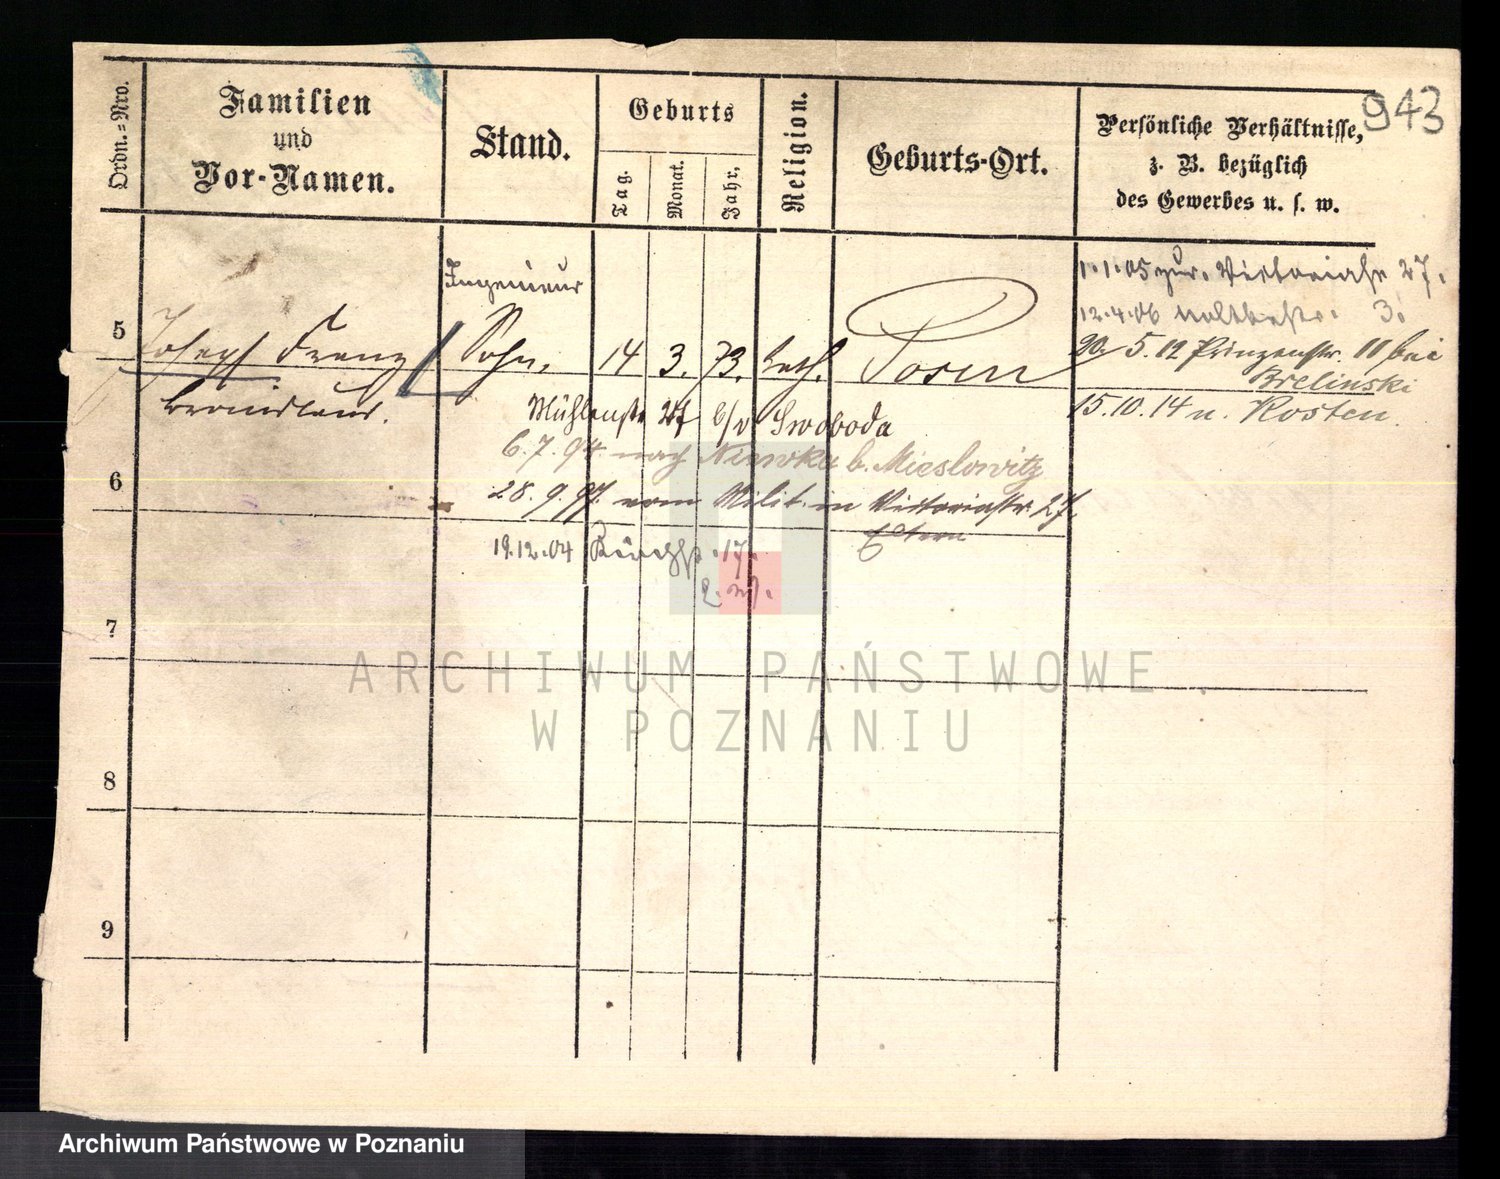 943
Ordn.=Nro.
Familien
und
Vor-Namen.
Stand.
Geburts
Tag.
Monat.
Jahr.
Religion.
Geburts-Ort.
Persönliche Verhältnisse,
z. B. bezüglich
des Gewerbes u. s. w.
Ingenieur
1.1.05 zur. Victoriastr 27.
12.4.06 3.
5 Joseph Franz Sohn. 14 3. 73. kath. Posen
20. 5. 12 Prinzenstr. 11 bei
Brelinski
15.10.14 n. Kosten.
Mühlenstr 27 b/v Swoboda
6.7.94. nach Niewka b. Mieslowitz
6
28.9.97. vom Milit. in Victoriastr 27.
Eltern
19.12.04 17.
7
8
9
ARCHIWUM PAŃSTWOWE
W POZNANIU
Archiwum Państwowe w Poznaniu